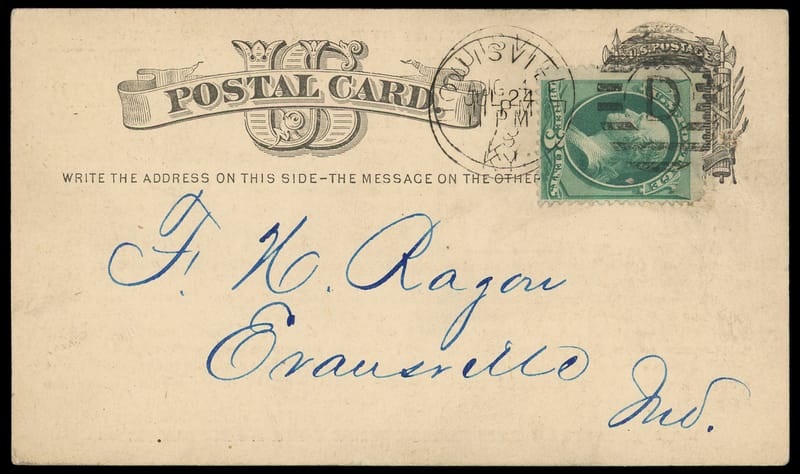 US
POSTAL CARD
WRITE THE ADDRESS ON THIS SIDE-THE MESSAGE ON THE OTHER
LOUISVILLE
JUL 24
PM
KY.
U.S. POSTAGE
D
3
F. H. Ragon
Evansville
Ind.